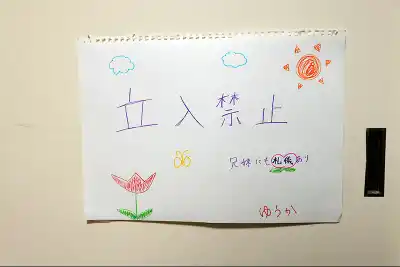 立入禁止
兄妹にも礼儀あり
ゆうか